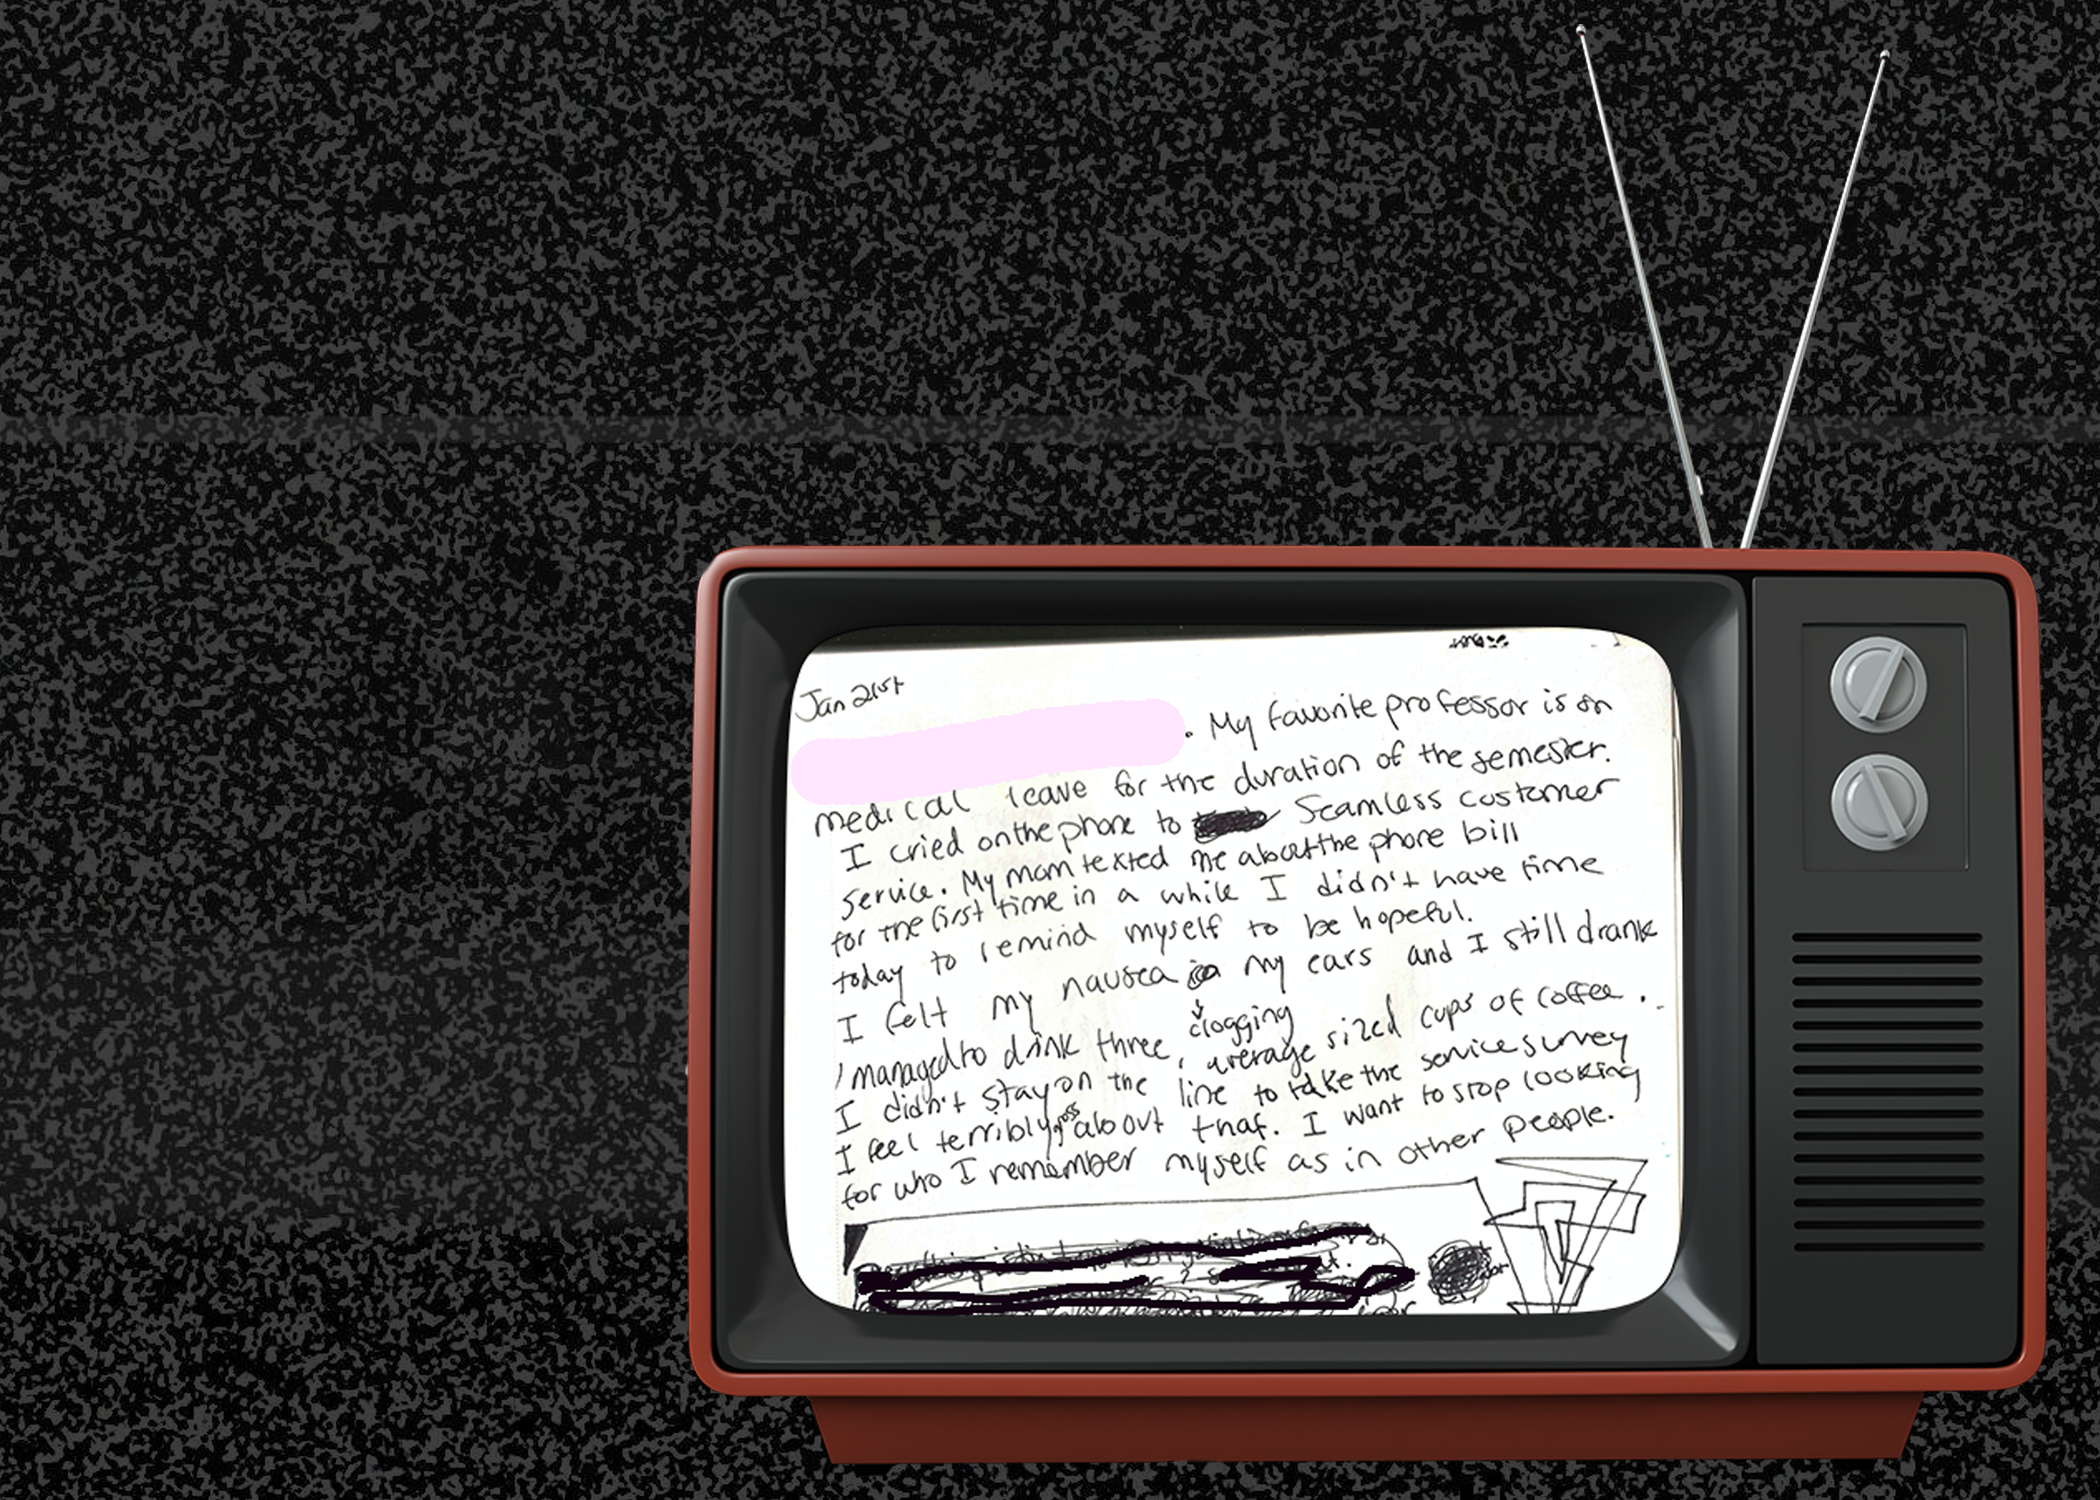 Jan 21st
. My favorite professor is on
medical leave for the duration of the semester.
I cried on the phone to Seamless customer
service. My mom texted me about the phone bill
for the first time in a while I didn't have time
today to remind myself to be hopeful.
I felt my nausea in my ears and I still drank
clogging
I managed to drink three, average sized cups of coffee.
I didn't stay on the line to take the service survey
I feel terribly gross about that. I want to stop looking
for who I remember myself as in other people.